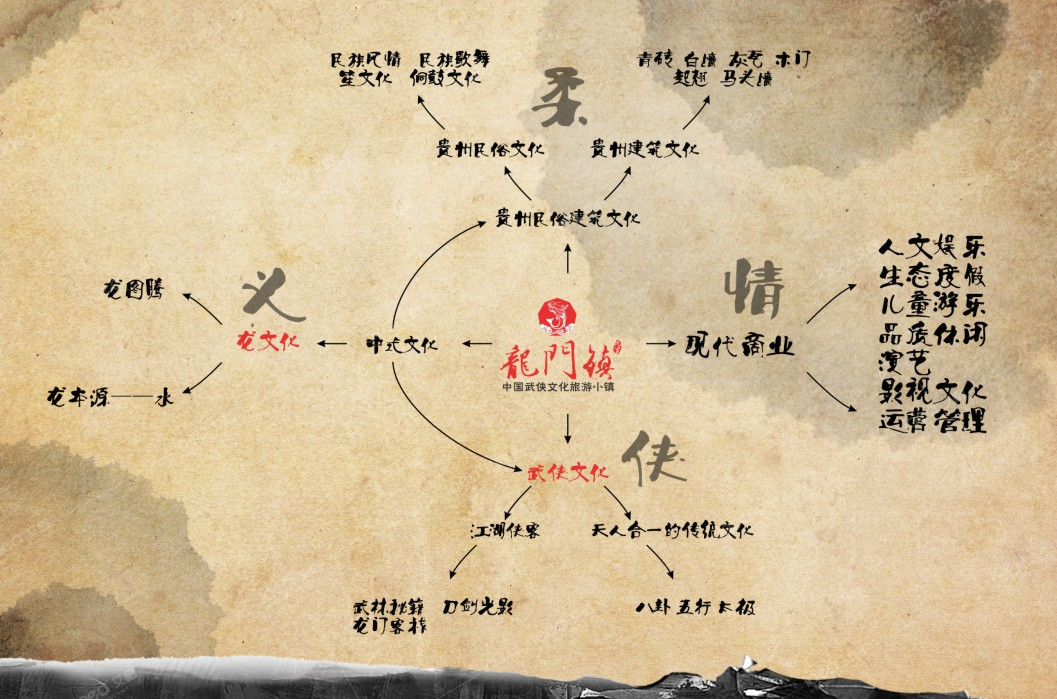 民族风情 民族歌舞
笙文化 侗鼓文化
柔
青砖 白墙 灰瓦 木门
起翘 马头墙
貴州民俗文化
貴州建筑文化
貴州民俗建筑文化
人文娱乐
生态度假
儿童游乐
品质休闲
演艺
影视文化
运营管理
情
义
龙图腾
龙文化
中式文化
龍門镇
中国武侠文化旅游小镇
现代商业
龙本源——水
侠
武侠文化
江湖侠客
天人合一的传统文化
武林秘籍 刀剑光影
龙门客栈
八卦 五行 太极